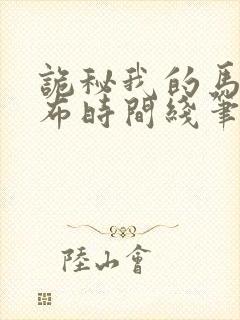 詭秘我的馬
布時間綫筆
陸山會